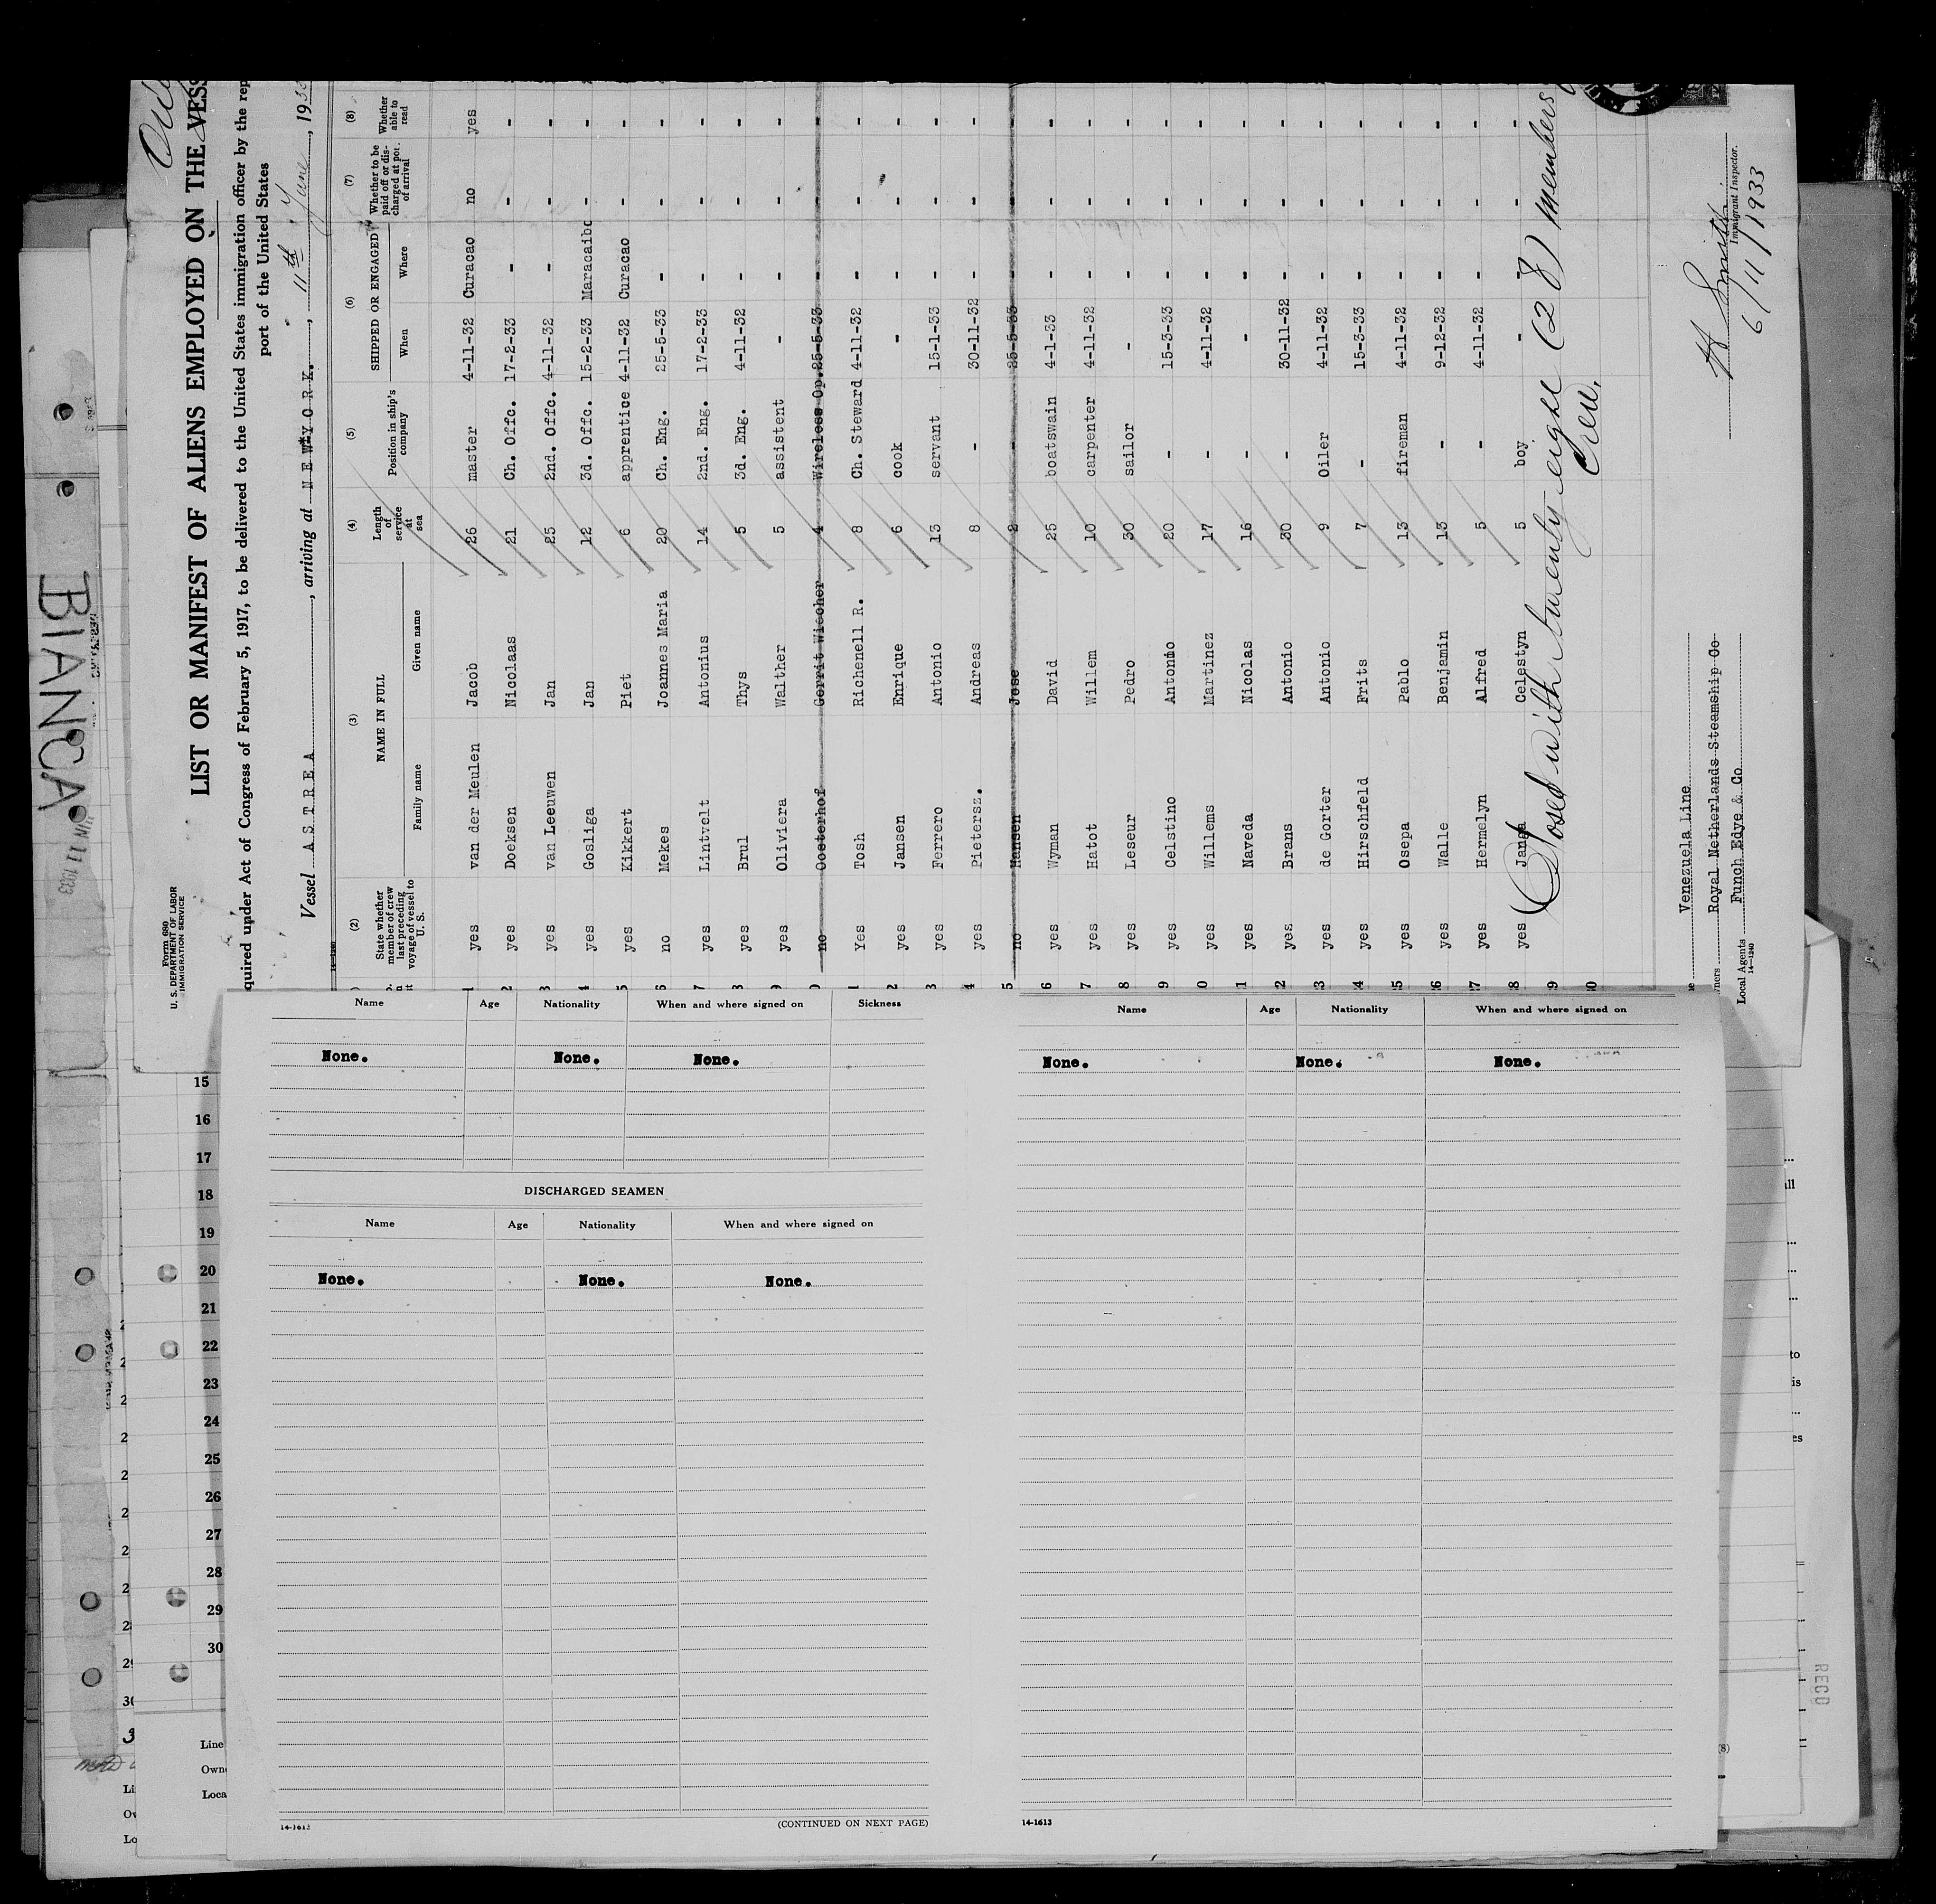 BIANCA
JUN 11 1933
Form 680
U. S. DEPARTMENT OF LABOR
IMMIGRATION SERVICE
LIST OR MANIFEST OF ALIENS EMPLOYED ON THE VESS
quired under Act of Congress of February 5, 1917, to be delivered to the United States immigration officer by the rep
port of the United States
Vessel A S T R E A , arriving at N E W Y O R K. , 11th June , 1933
14-1240
(2) (3) (4) (5) (6) (7) (8)
State whether member of crew last preceding voyage of vessel to U. S. NAME IN FULL Family name Given name Length of service at sea Position in ship's company SHIPPED OR ENGAGED When Where Whether to be paid off or discharged at port of arrival Whether able to read
1 yes van der Meulen Jacob 26 master 4-11-32 Curacao no yes
2 yes Doeksen Nicolaas 21 Ch. Offc. 17-2-33 - - -
3 yes van Leeuwen Jan 25 2nd. Offc. 4-11-32 - - -
4 yes Gosliga Jan 12 3d. Offc. 15-2-33 Maracaibo - -
5 yes Kikkert Piet 6 apprentice 4-11-32 Curacao - -
6 no Mekes Joannes Maria 20 Ch. Eng. 25-5-33 - - -
7 yes Lintvelt Antonius 14 2nd. Eng. 17-2-33 - - -
8 yes Brul Thys 5 3d. Eng. 4-11-32 - - -
9 yes Oliviera Walther 5 assistent - - - -
0 no Oosterhof Gerrit Wiecher 4 Wireless Op. 25-5-33 - - -
1 Yes Tosh Richenell R. 8 Ch. Steward 4-11-32 - - -
2 yes Jansen Enrique 6 cook - - - -
3 yes Ferrero Antonio 13 servant 15-1-33 - - -
4 yes Pietersz. Andreas 8 - 30-11-32 - - -
5 no Hansen Jose 2 - 25-5-33 - - -
6 yes Wyman David 25 boatswain 4-1-33 - - -
7 yes Hatot Willem 10 carpenter 4-11-32 - - -
8 yes Leseur Pedro 30 sailor - - - -
9 yes Celstino Antonio 20 - 15-3-33 - - -
0 yes Willems Martinez 17 - 4-11-32 - - -
21 yes Naveda Nicolas 16 - - - - -
22 yes Brans Antonio 30 - 30-11-32 - - -
23 yes de Gorter Antonio 9 Oiler 4-11-32 - - -
24 yes Hirschfeld Frits 7 - 15-3-33 - - -
25 yes Osepa Pablo 13 fireman 4-11-32 - - -
26 yes Walle Benjamin 13 - 9-12-32 - - -
27 yes Hermelyn Alfred 5 - 4-11-32 - - -
28 yes Janga Celestyn 5 boy - - - -
29
30
Closed with twenty eight (28) members
Crew.
Venezuela Line
Royal Netherlands Steamship Co
Local Agents Funch Edye & Co
14-1240
H Smith
Immigrant Inspector.
6/11/1933
Name Age Nationality When and where signed on Sickness
None. None. None.
DISCHARGED SEAMEN
Name Age Nationality When and where signed on
None. None. None.
14-1613
(CONTINUED ON NEXT PAGE)
Name Age Nationality When and where signed on
None. None. None.
14-1613
15
16
17
18
19
20
21
22
23
24
25
26
27
28
29
30
Line
Own
Loca
RECD